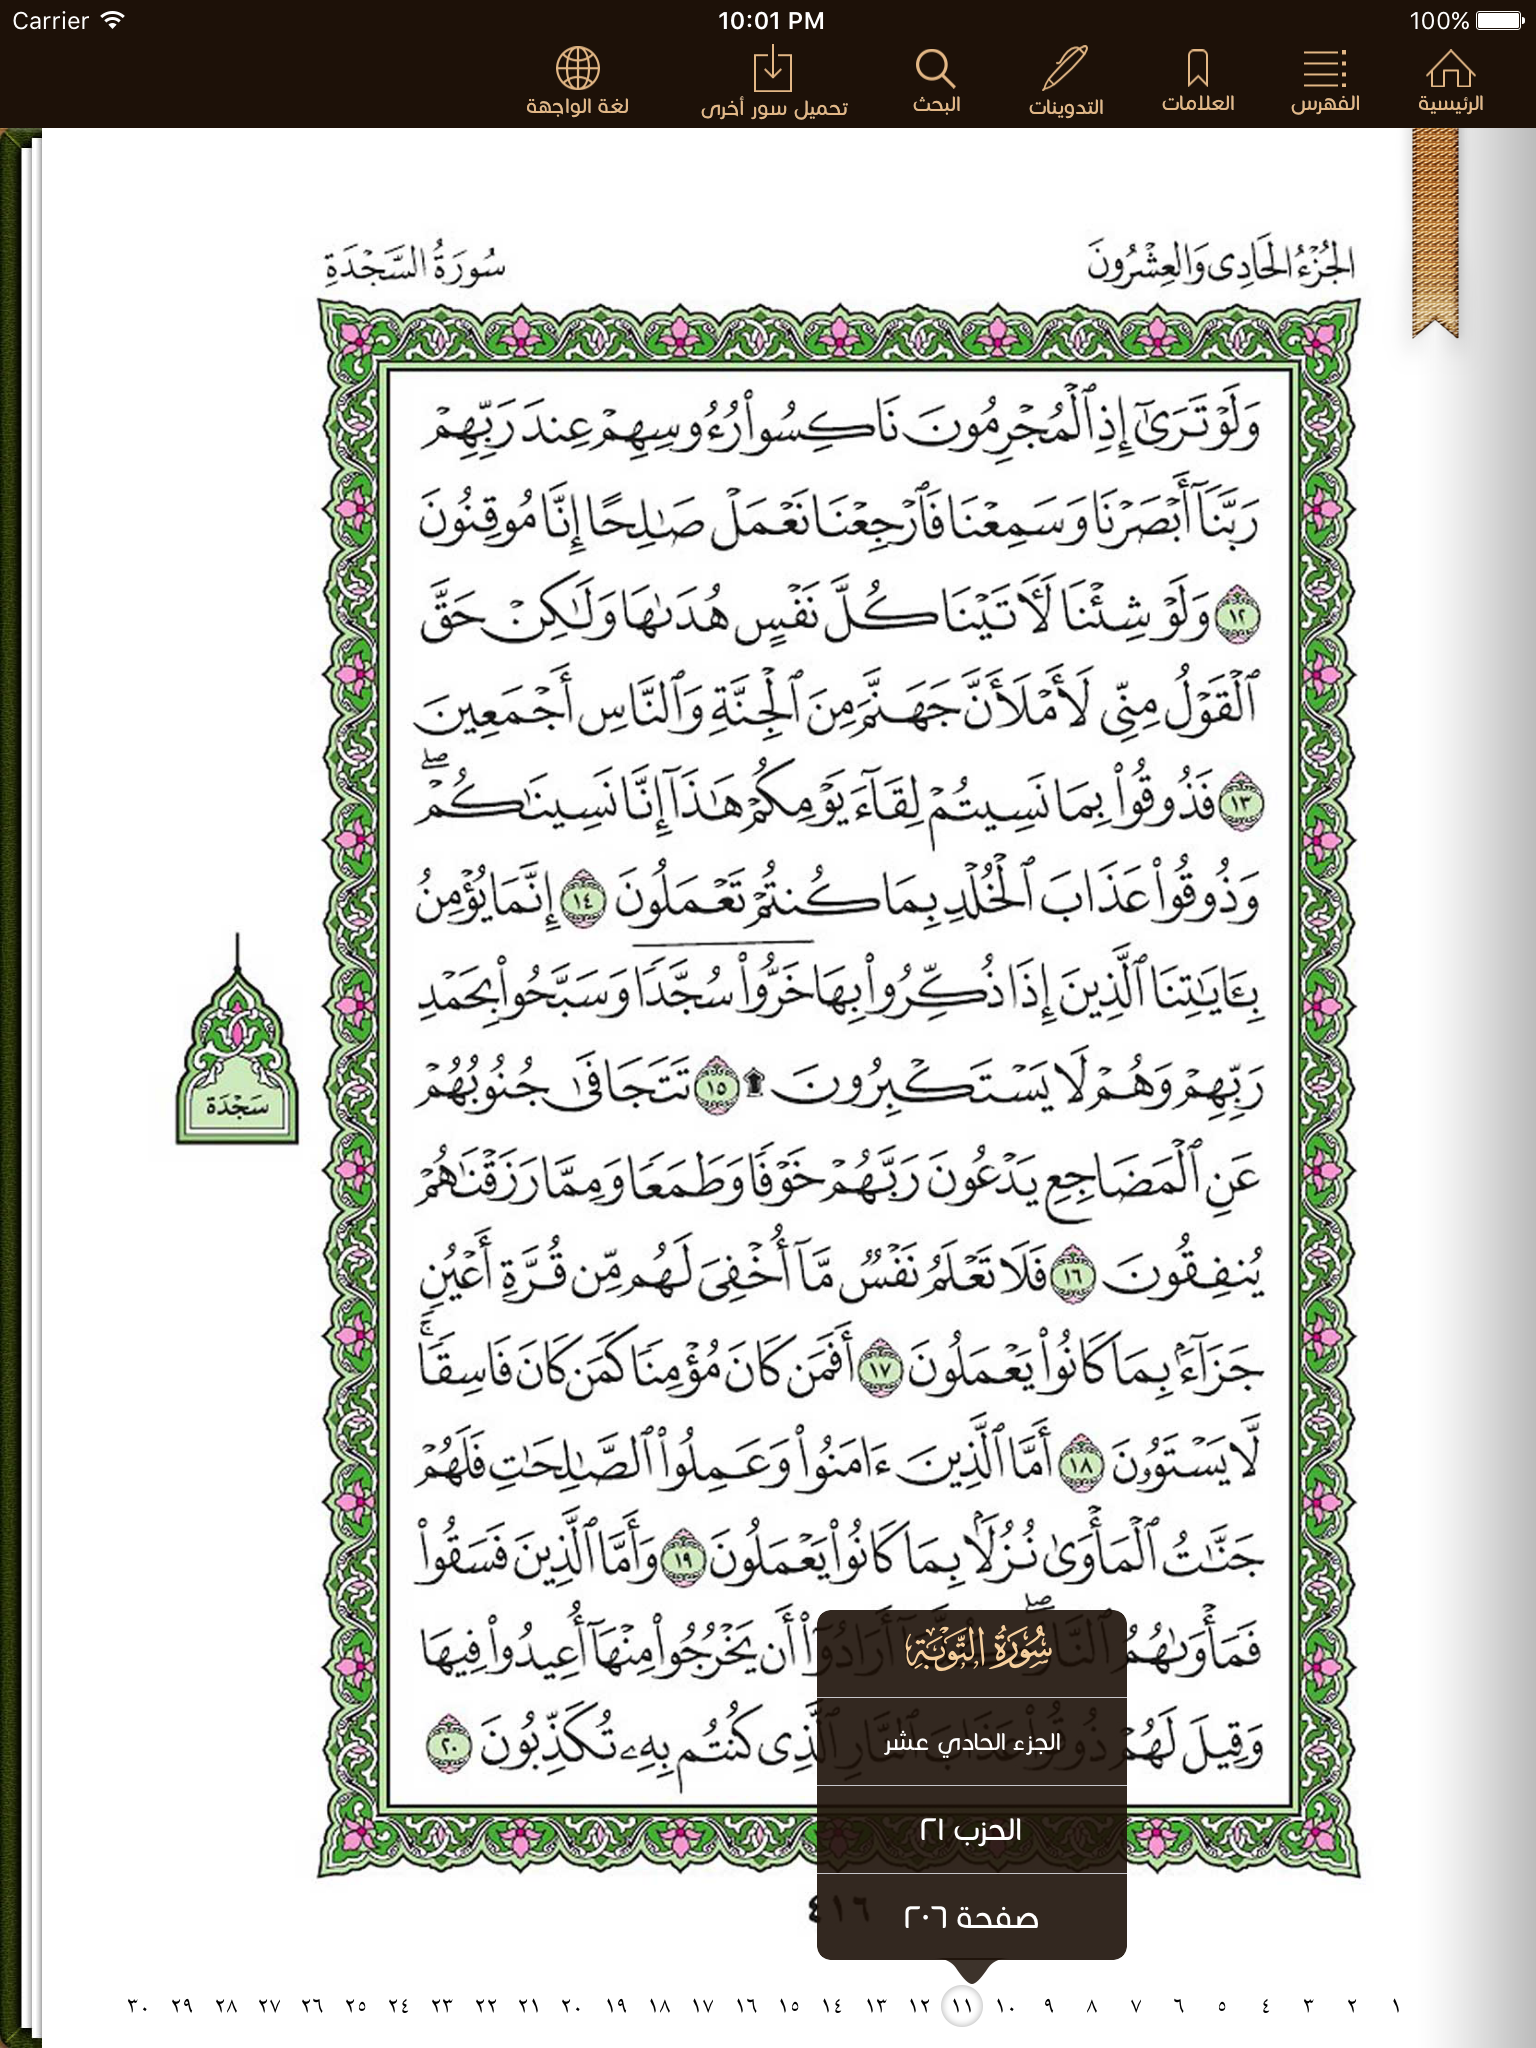 Carrier 10:01 PM 100%
الرئيسية الفهرس العلامات التدوينات البحث تحميل سور أخرى لغة الواجهة
الجُزْءُ الحَادِى وَالعِشْرُونَ سُورَةُ السَّجْدَةِ
وَلَوْ تَرَىٰٓ إِذِ ٱلْمُجْرِمُونَ نَاكِسُوا۟ رُءُوسِهِمْ عِندَ رَبِّهِمْ
رَبَّنَآ أَبْصَرْنَا وَسَمِعْنَا فَٱرْجِعْنَا نَعْمَلْ صَـٰلِحًا إِنَّا مُوقِنُونَ
١٢ وَلَوْ شِئْنَا لَـَٔاتَيْنَا كُلَّ نَفْسٍ هُدَىٰهَا وَلَـٰكِنْ حَقَّ
ٱلْقَوْلُ مِنِّى لَأَمْلَأَنَّ جَهَنَّمَ مِنَ ٱلْجِنَّةِ وَٱلنَّاسِ أَجْمَعِينَ
١٣ فَذُوقُوا۟ بِمَا نَسِيتُمْ لِقَآءَ يَوْمِكُمْ هَـٰذَآ إِنَّا نَسِينَـٰكُمْ ۖ
وَذُوقُوا۟ عَذَابَ ٱلْخُلْدِ بِمَا كُنتُمْ تَعْمَلُونَ ١٤ إِنَّمَا يُؤْمِنُ
بِـَٔايَـٰتِنَا ٱلَّذِينَ إِذَا ذُكِّرُوا۟ بِهَا خَرُّوا۟ سُجَّدًا وَسَبَّحُوا۟ بِحَمْدِ
رَبِّهِمْ وَهُمْ لَا يَسْتَكْبِرُونَ ۩ ١٥ تَتَجَافَىٰ جُنُوبُهُمْ
سَجْدَة
عَنِ ٱلْمَضَاجِعِ يَدْعُونَ رَبَّهُمْ خَوْفًا وَطَمَعًا وَمِمَّا رَزَقْنَـٰهُمْ
يُنفِقُونَ ١٦ فَلَا تَعْلَمُ نَفْسٌ مَّآ أُخْفِىَ لَهُم مِّن قُرَّةِ أَعْيُنٍ
جَزَآءًۢ بِمَا كَانُوا۟ يَعْمَلُونَ ١٧ أَفَمَن كَانَ مُؤْمِنًا كَمَن كَانَ فَاسِقًا ۚ
لَّا يَسْتَوُۥنَ ١٨ أَمَّا ٱلَّذِينَ ءَامَنُوا۟ وَعَمِلُوا۟ ٱلصَّـٰلِحَـٰتِ فَلَهُمْ
جَنَّـٰتُ ٱلْمَأْوَىٰ نُزُلًۢا بِمَا كَانُوا۟ يَعْمَلُونَ ١٩ وَأَمَّا ٱلَّذِينَ فَسَقُوا۟
فَمَأْوَىٰهُمُ ٱلنَّارُ ۖ أَرَادُوٓا۟ أَن يَخْرُجُوا۟ مِنْهَآ أُعِيدُوا۟ فِيهَا
وَقِيلَ لَهُمْ ذُوقُوا۟ عَذَابَ ٱلنَّارِ ٱلَّذِى كُنتُم بِهِۦ تُكَذِّبُونَ ٢٠
سُورَةُ التَّوْبَةِ
الجزء الحادي عشر
الحزب ٢١
صفحة ٢٠٦
٤١٦
١ ٢ ٣ ٤ ٥ ٦ ٧ ٨ ٩ ١٠ ١١ ١٢ ١٣ ١٤ ١٥ ١٦ ١٧ ١٨ ١٩ ٢٠ ٢١ ٢٢ ٢٣ ٢٤ ٢٥ ٢٦ ٢٧ ٢٨ ٢٩ ٣٠